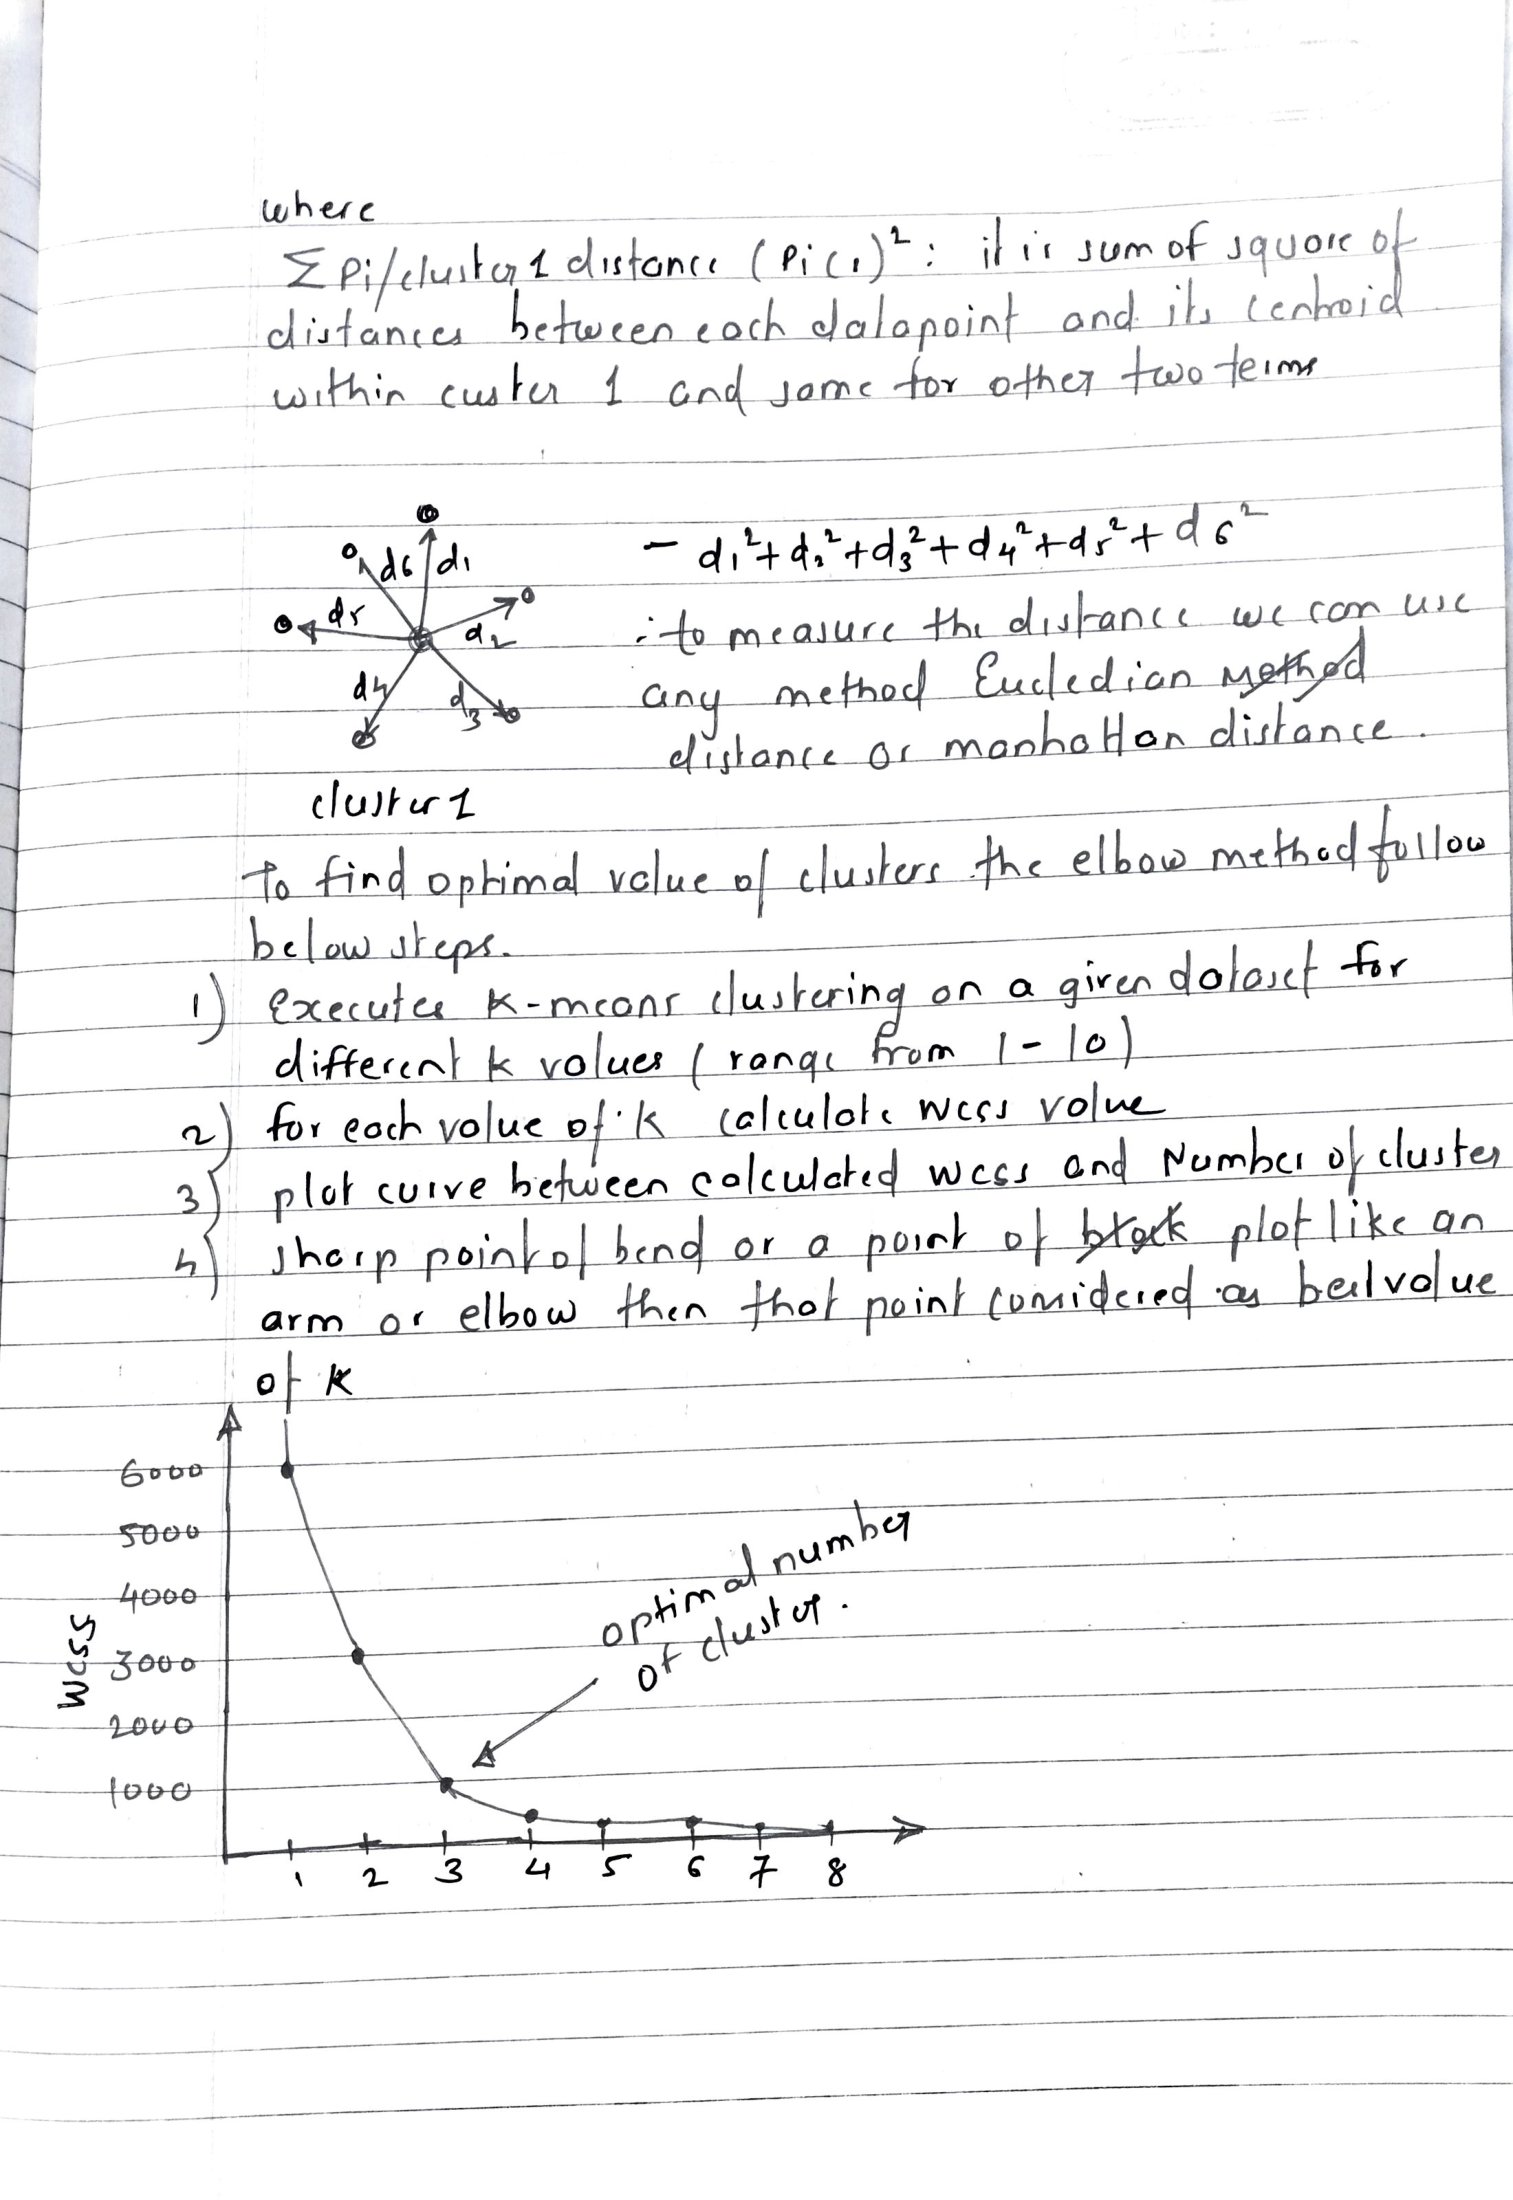 where
Σ Pi/cluster 1 distance (Pi C1)²: it is sum of square of
distances between each datapoint and its centroid
within custer 1 and same for other two terms
- d1² + d2² + d3² + d4² + d5² + d6²
d6 d1
d5
d2
d4
d3
: to measure the distance we can use
any method Eucledian method
distance or manhattan distance.
cluster 1
To find optimal value of clusters the elbow method follow
below steps.
1) Executes K-means clustering on a given dataset for
different k values (range from 1-10)
2) for each value of k calculate wcss value
3) plot curve between calculated wcss and Number of cluster
4) sharp point of bend or a point of plot like an
arm or elbow then that point considered as best value
of K
6000
5000
4000
3000
2000
1000
WCSS
optimal number
of cluster.
1 2 3 4 5 6 7 8